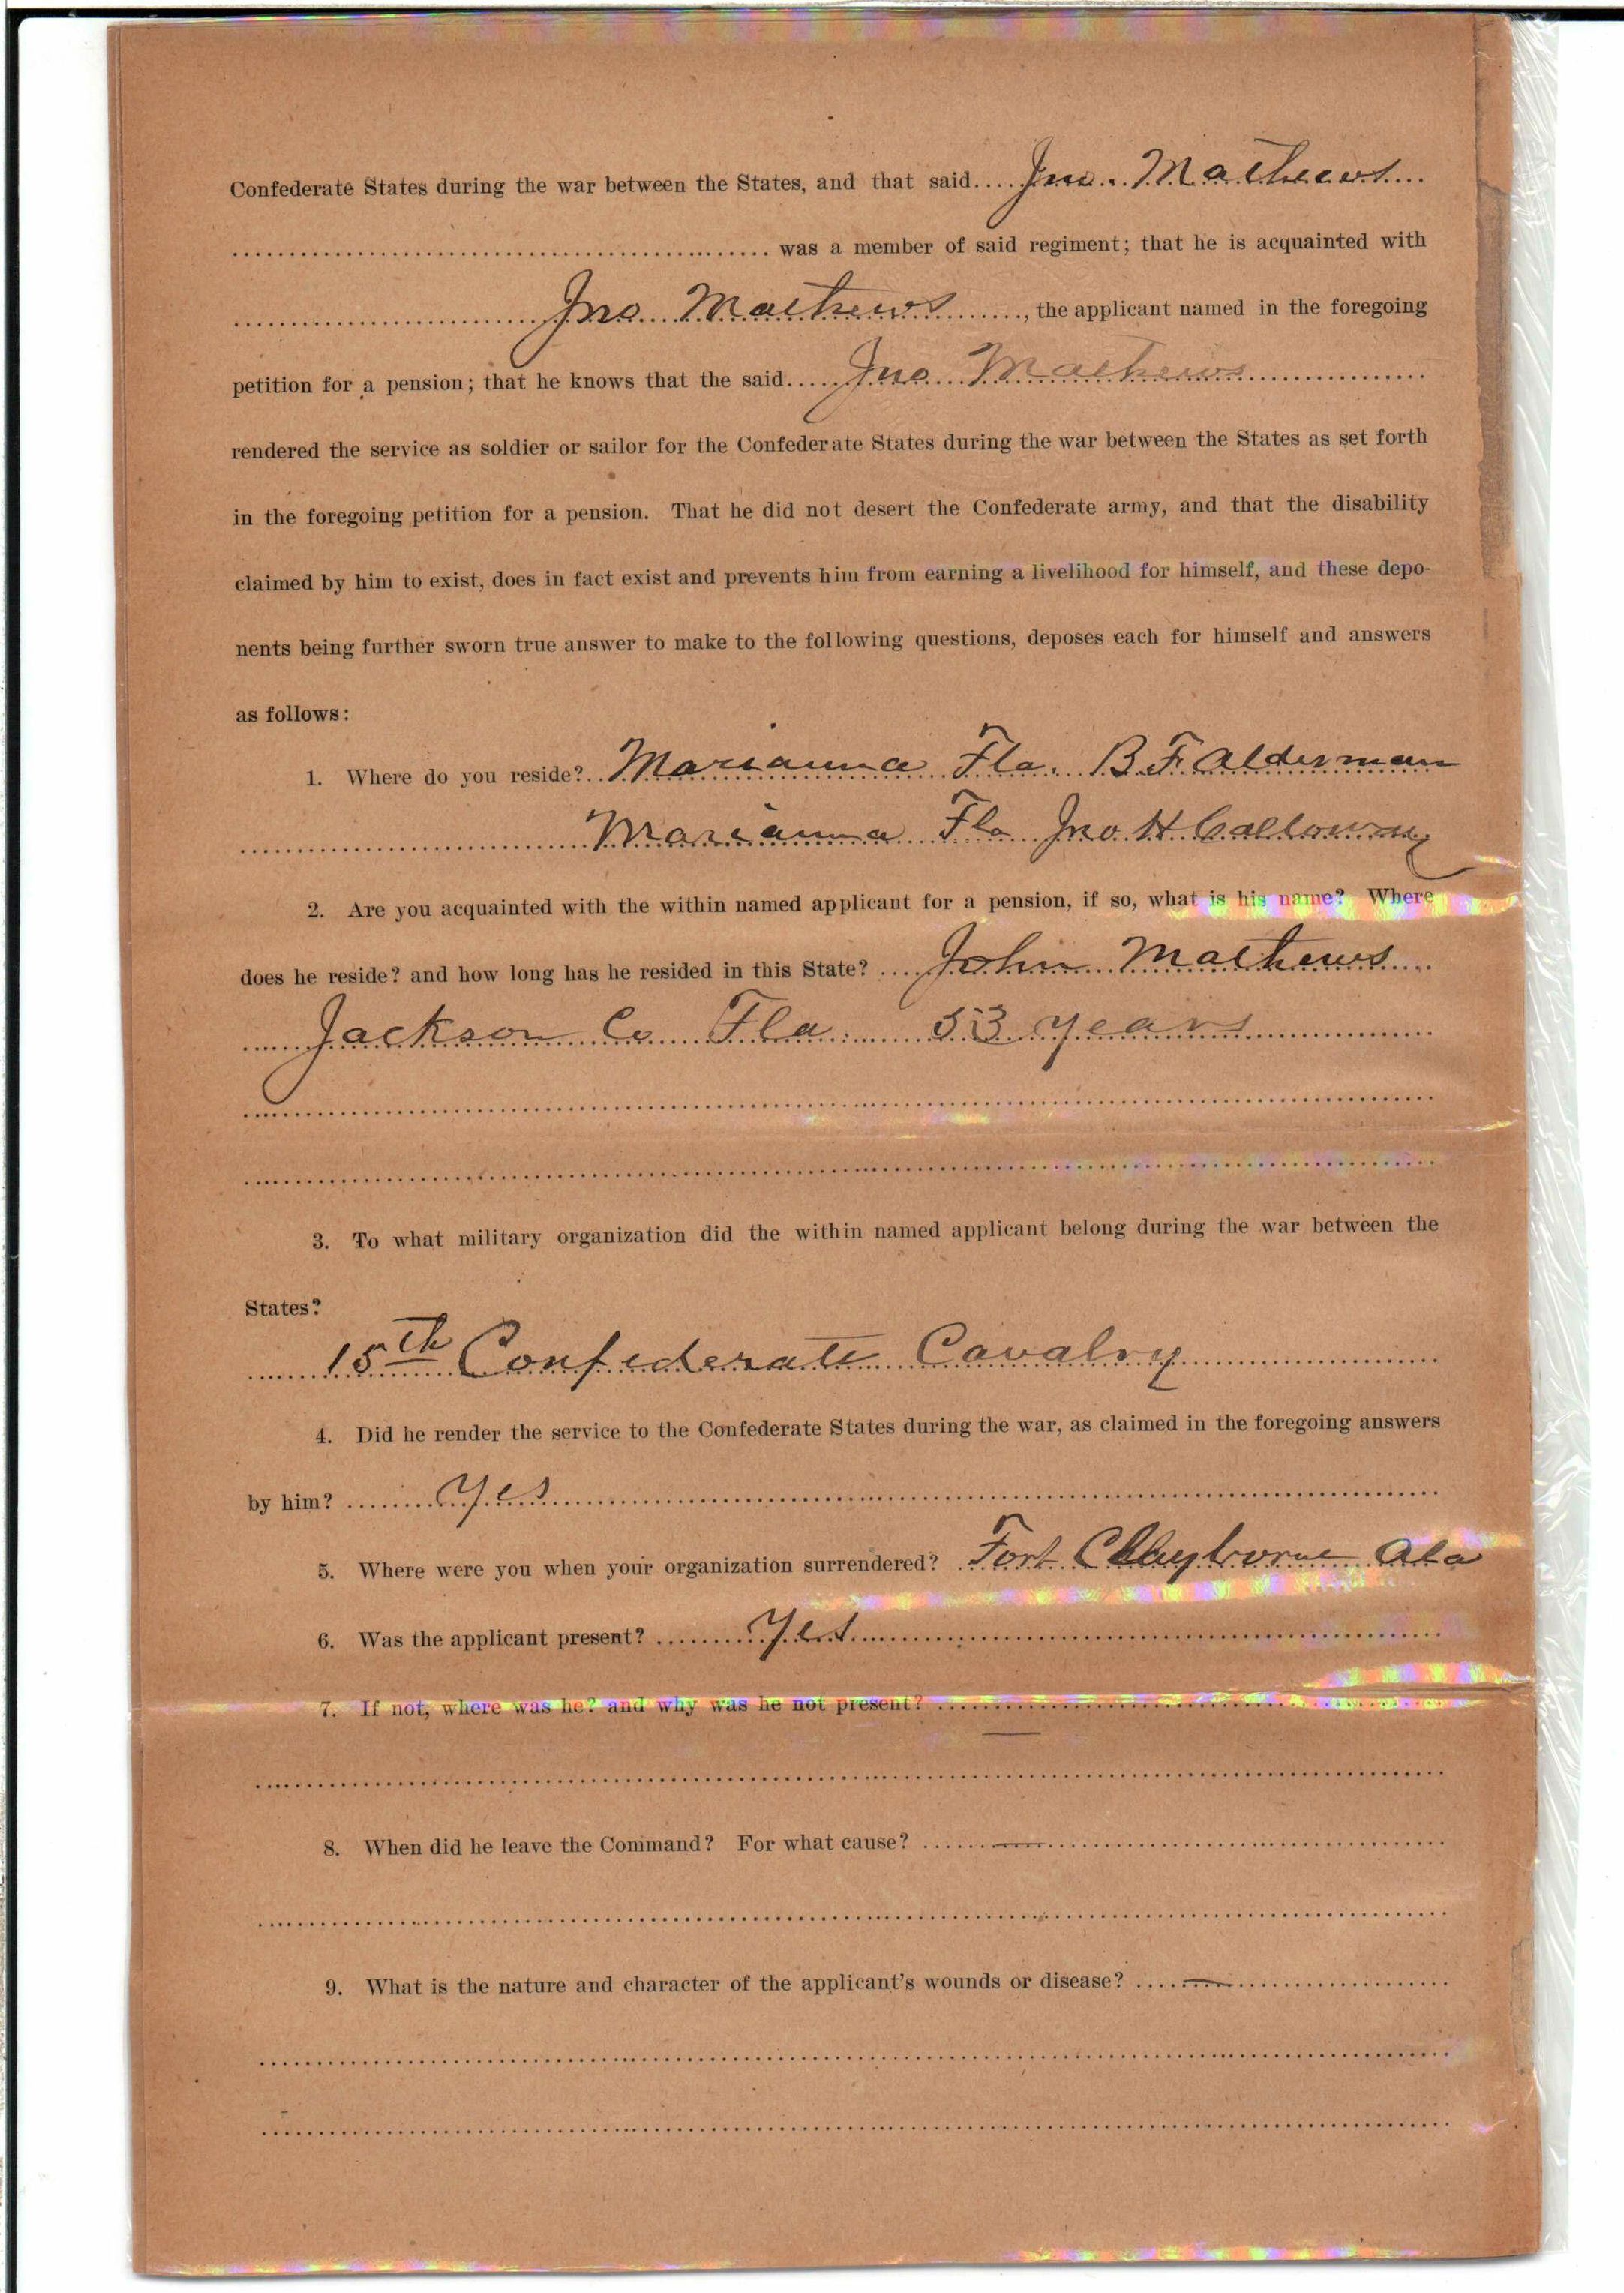 Confederate States during the war between the States, and that said.... Jno. Mathews....
was a member of said regiment; that he is acquainted with
Jno Mathews, the applicant named in the foregoing
petition for a pension; that he knows that the said..... Jno Mathews
rendered the service as soldier or sailor for the Confederate States during the war between the States as set forth
in the foregoing petition for a pension. That he did not desert the Confederate army, and that the disability
claimed by him to exist, does in fact exist and prevents him from earning a livelihood for himself, and these depo-
nents being further sworn true answer to make to the following questions, deposes each for himself and answers
as follows:
1. Where do you reside? Marianna Fla. B F Alderman
Marianna Fla Jno H Calloway
2. Are you acquainted with the within named applicant for a pension, if so, what is his name? Where
does he reside? and how long has he resided in this State? John Mathews
Jackson Co Fla. 53 years
3. To what military organization did the within named applicant belong during the war between the
States?
15th Confederate Cavalry
4. Did he render the service to the Confederate States during the war, as claimed in the foregoing answers
by him? Yes
5. Where were you when your organization surrendered? Fort Clayborne Ala
6. Was the applicant present? Yes
7. If not, where was he? and why was he not present?
8. When did he leave the Command? For what cause?
9. What is the nature and character of the applicant's wounds or disease?